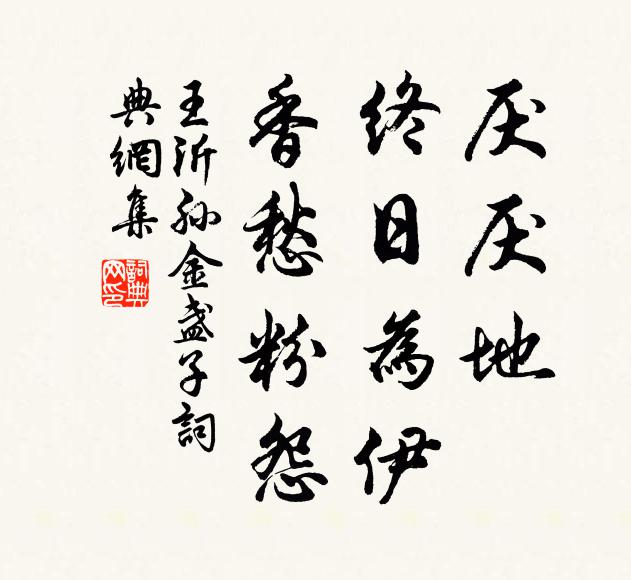 厌厌地
终日為伊
香愁粉怨
王沂孙金盏子詞
典網集
詞典
网印